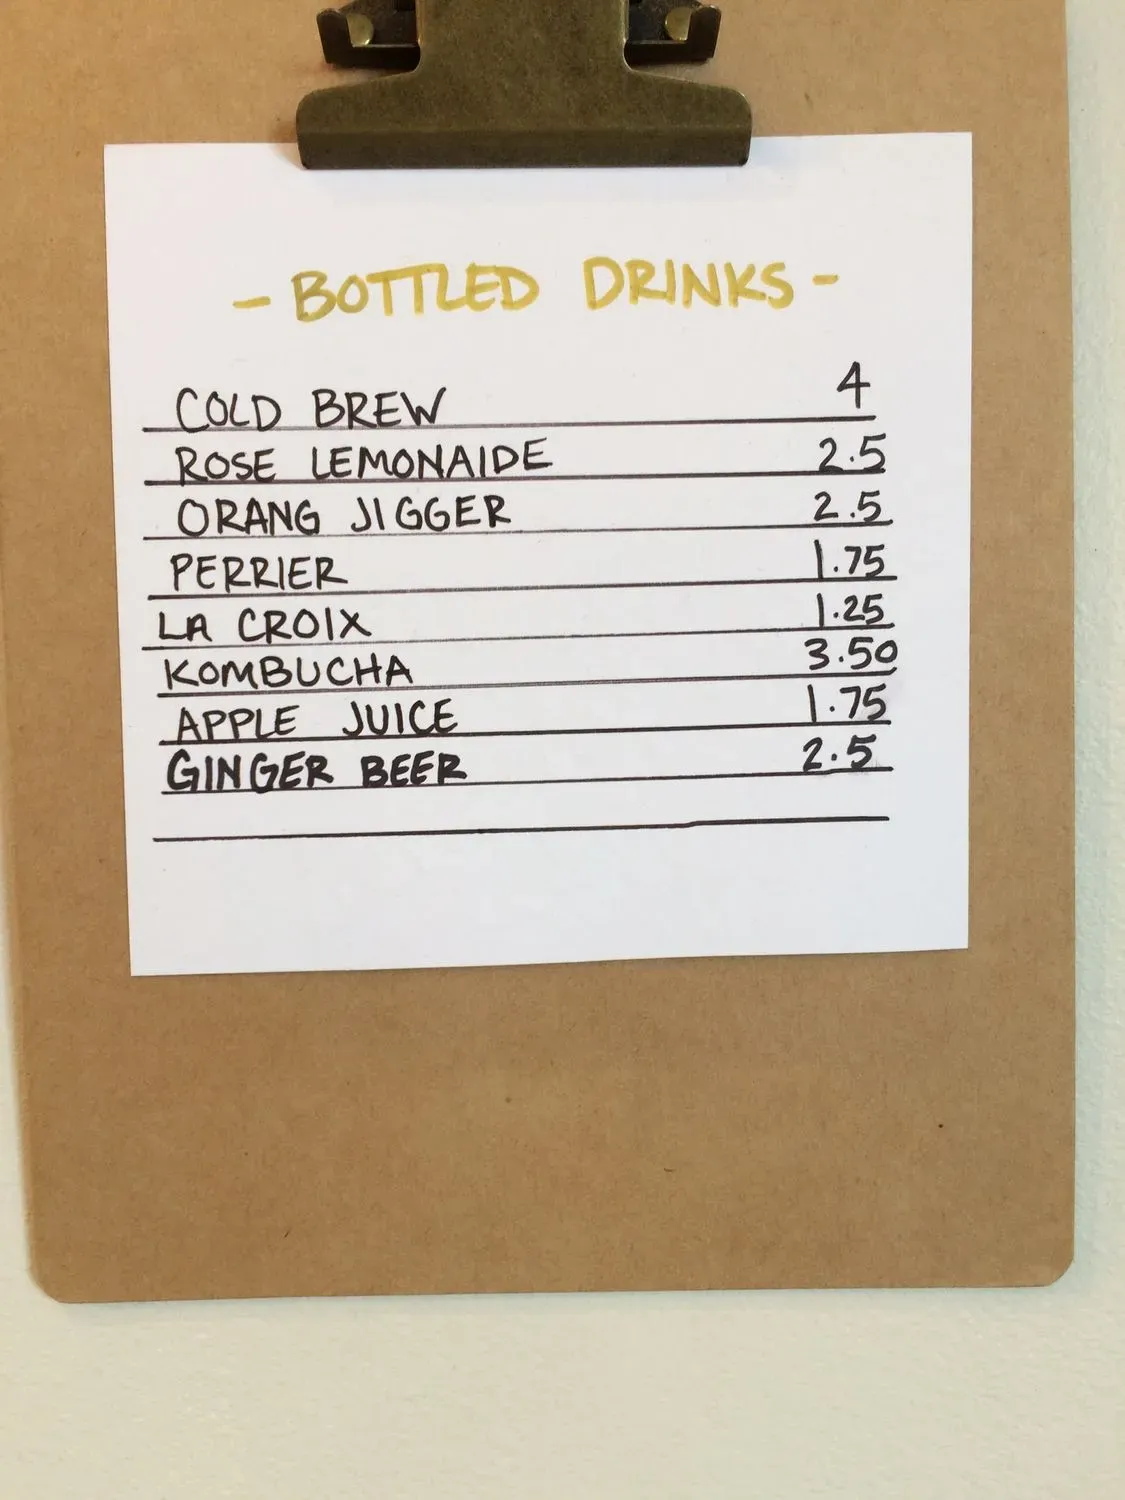 - BOTTLED DRINKS -
COLD BREW 4
ROSE LEMONAIDE 2.5
ORANG JIGGER 2.5
PERRIER 1.75
LA CROIX 1.25
KOMBUCHA 3.50
APPLE JUICE 1.75
GINGER BEER 2.5